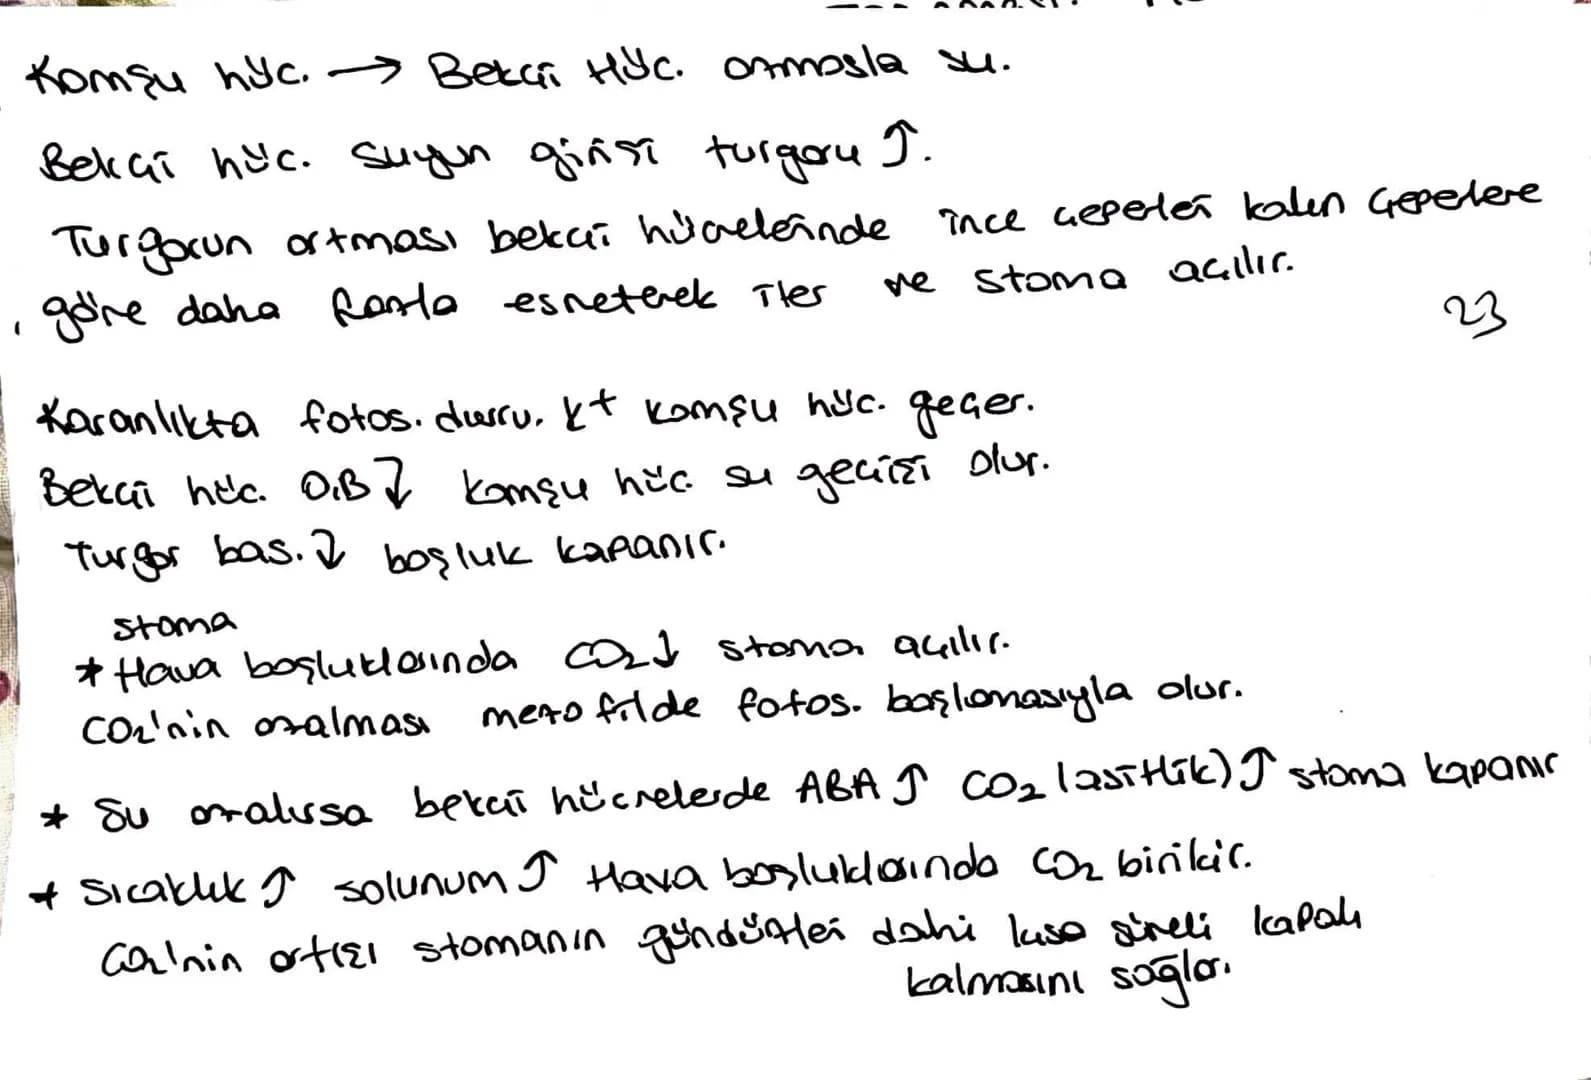 Komşu hüc. → Bekçi Hüc. ozmosla su.
Bekçi hüc. suyun girişi turgoru ↑.
Turgorun artması bekçi hücrelerinde ince çeperleri kalın çeperlere
göre daha fazla esneterek iter ve stoma açılır.
23
Karanlıkta fotos. durur. K+ komşu hüc. geçer.
Bekçi hüc. O.B ↓ komşu hüc. su geçişi olur.
Turgor bas. ↓ boşluk kapanır.
stoma
* Hava boşluklarında CO2 ↓ stoma açılır.
CO2'nin azalması mezofilde fotos. başlamasıyla olur.
* Su azalırsa bekçi hücrelerde ABA ↑ CO2 (asitlik) ↑ stoma kapanır
* Sıcaklık ↑ solunum ↑ Hava boşluklarında CO2 birikir.
CO2'nin artışı stomanın gündüzleri dahi kısa süreli kapalı
kalmasını sağlar.